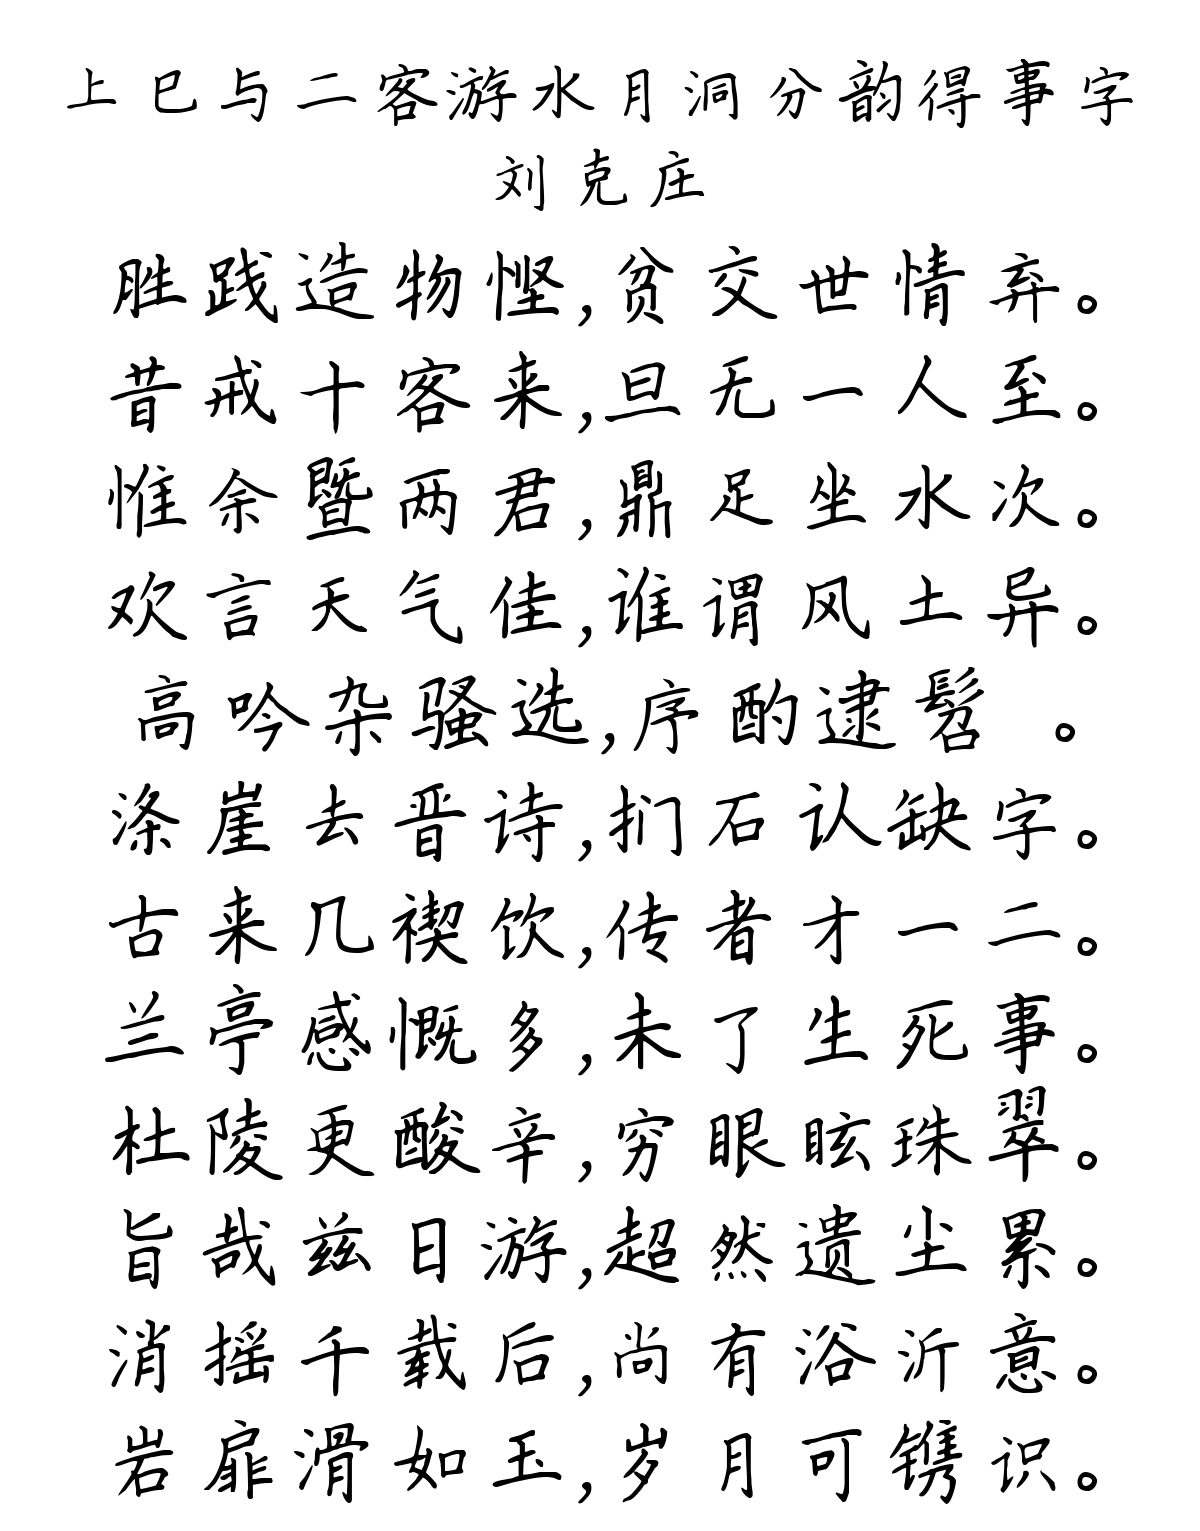 上巳与二客游水月洞分韵得事字
刘克庄
胜践造物悭,贫交世情弃。
昔戒十客来,旦无一人至。
惟余暨两君,鼎足坐水次。
欢言天气佳,谁谓风土异。
高吟杂骚选,序酌逮髫 。
涤崖去晋诗,扪石认缺字。
古来几禊饮,传者才一二。
兰亭感慨多,未了生死事。
杜陵更酸辛,穷眼眩珠翠。
旨哉兹日游,超然遗尘累。
消摇千载后,尚有浴沂意。
岩扉滑如玉,岁月可镌识。